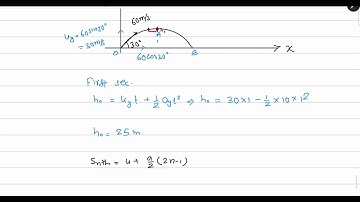 60m/s
uy = 60sin30°
= 30m/s
A
30°
O
B
x
60cos30°
First sec.
h₀ = uy t + ½ ay t² ⇒ h₀ = 30×1 - ½ ×10 × 1²
h₀ = 25 m
Snth = u + a/2 (2n-1)